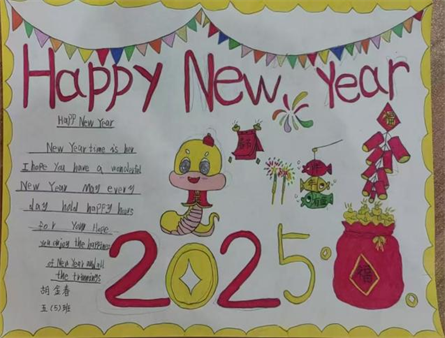 Happy New Year
Happy New Year
New Year time is her
I hope you have a wondeful
New Year May every
day held happy hours
for Your Hope
you enjoy the happiness
of New Year and all
the trimmings
胡金春
五(5)班
福
福
2025
福